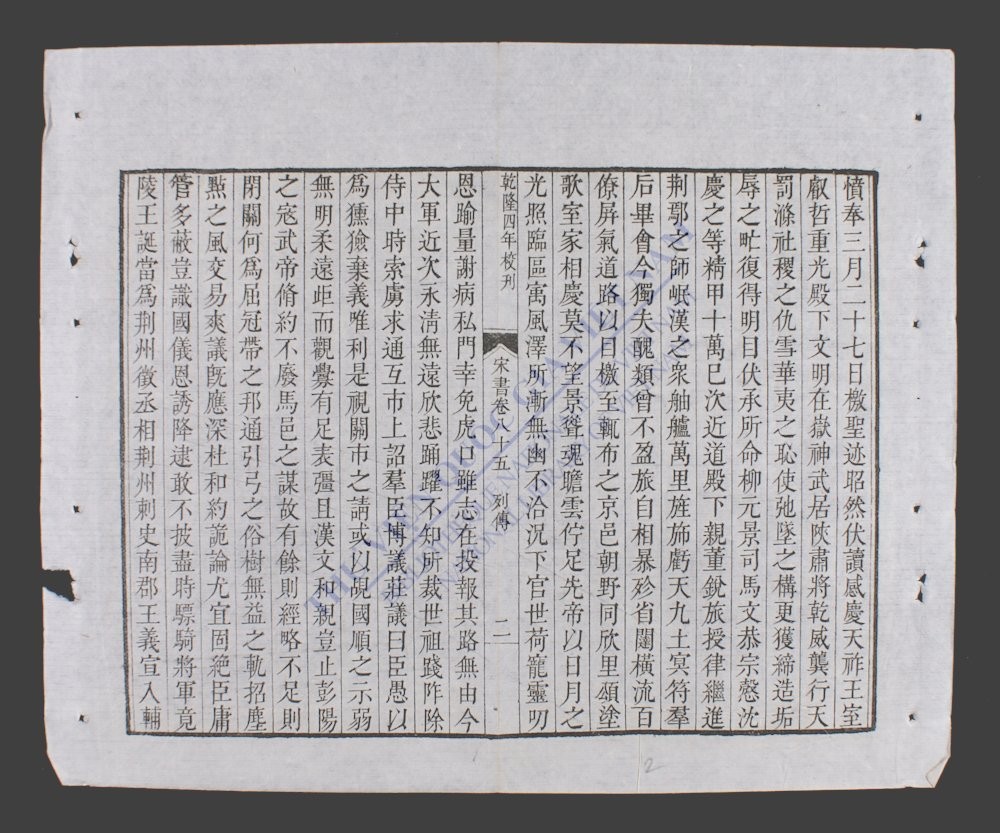 憤奉三月二十七日檄聖迹昭然伏讀感慶天祚王室
叡哲重光殿下文明在嶽神武居陜肅將乾威龔行天
罰滌社稷之仇雪華夷之恥使弛墜之構更獲締造垢
辱之甿復得明目伏承所命柳元景司馬文恭宗慤沈
慶之等精甲十萬已次近道殿下親董銳旅授律繼進
荆鄢之師岷漢之衆舳艫萬里旌旆虧天九土冥符羣
后畢會今獨夫醜類曾不盈旅自相暴殄省闥橫流百
僚屏氣道路以目檄至輒布之京邑朝野同欣里頌塗
歌室家相慶莫不望景聳魂瞻雲佇足先帝以日月之
光照臨區寓風澤所漸無幽不洽況下官世荷寵靈叨
乾隆四年校刊
宋書卷八十五 列傳
二
恩踰量謝病私門幸免虎口雖志在投報其路無由今
大軍近次永清無遠欣悲踊躍不知所裁世祖踐阼除
侍中時索虜求通互市上詔羣臣博議莊議曰臣愚以
爲獯獫棄義唯利是視關市之請或以覘國順之示弱
無明柔遠距而觀釁有足表彊且漢文和親豈止彭陽
之寇武帝脩約不廢馬邑之謀故有餘則經略不足則
閉關何爲屈冠帶之邦通引弓之俗樹無益之軌招塵
點之風交易爽議旣應深杜和約詭論尤宜固絶臣庸
管多蔽豈識國儀恩誘降逮敢不披盡時驃騎將軍竟
陵王誕當爲荆州徵丞相荆州刺史南郡王義宣入輔
THƯ VIỆN QUỐC GIA VIỆT NAM
NATIONAL LIBRARY OF VIETNAM
2